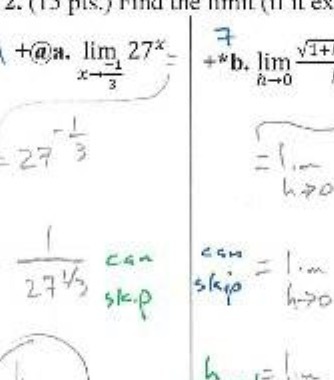 2. (15 pts.) Find the limit (if it ex
+@a. lim 27ˣ =
x→-1/3
= 27^(-1/3)
1
27^(1/3)
can
skip
7
+*b. lim √1+
h→0
= lim
h→0
can
skip
= lim
h→0
= lim